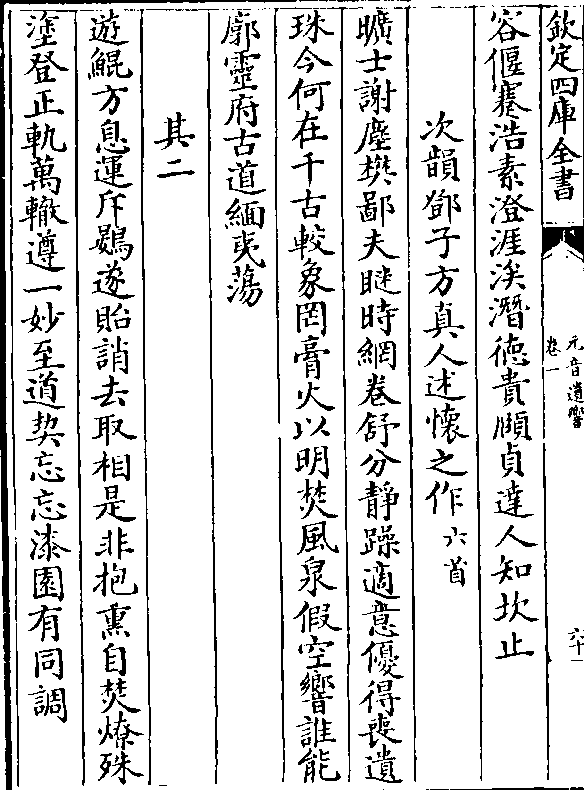 欽定四庫全書
元音遺響
卷一
六十一
容偃蹇浩素澄涯涘潛徳貴頤貞達人知坎止
次韻鄧子方真人述懐之作六首
曠士謝塵樊鄙夫瞇時網卷舒分靜躁適意優得喪遺
珠今何在千古較象罔膏火以明焚風泉假空響誰能
廓靈府古道緬夷蕩
其二
遊鯤方息運斥鷃遂貽誚去取相是非抱熏自焚燎殊
塗登正軌萬轍遵一妙至道契忘忘漆園有同調